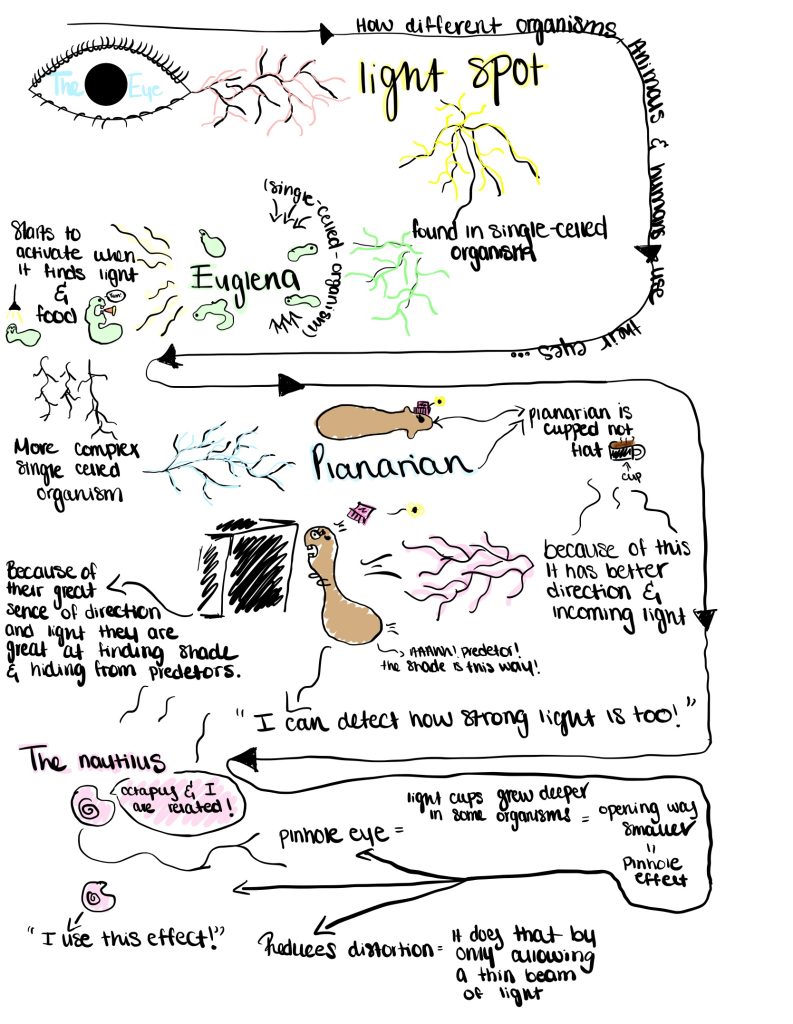 The Eye
How different organisms,
Animals & humans use
their eyes ...
light spot
found in single-celled
organism
(single-celled-organism)
Euglena
Starts to
activate when
it finds light
&
food
More complex
single celled
organism
Planarian
planarian is
cupped not
flat
cup
because of this
it has better
direction &
incoming light
Because of
their great
sence of direction
and light they are
great at finding shade
& hiding from predetors.
AAAHH! Predetor!
the shade is this way!
"I can detect how strong light is too!"
The nautilus
octopus & I
are related!
light cups grew deeper
in some organisms = opening way
smaller
"
Pinhole
effect
pinhole eye =
"I use this effect!"
Reduces distortion = it does that by
only allowing
a thin beam
of light